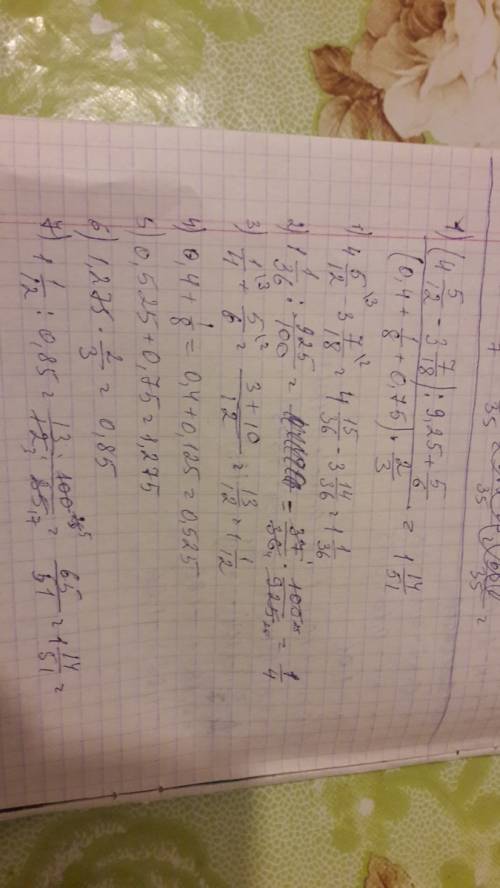 1) (4 5/12 - 3 7/18) : 9,25 + 5/6
(0,4 + 1/8 + 0,75) · 2/3 = 1 14/51
1) 4 5/12 \3 - 3 7/18 \2 = 4 15/36 - 3 14/36 = 1 1/36
2) 1 1/36 : 925/100 = = 37/36 · 100/925 = 1/4... 
3) 1/4 \3 + 5/6 \2 = 3+10/12 = 13/12 = 1 1/12
4) 0,4 + 1/8 = 0,4 + 0,125 = 0,525
5) 0,525 + 0,75 = 1,275
6) 1,275 · 2/3 = 0,85
7) 1 1/12 : 0,85 = 13 · 100/12 · 85 = 65/51 = 1 14/51 =